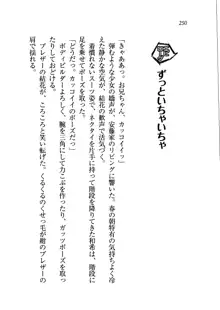 250
ずっといちゃいちゃ
「きゃああっ。お兄ちゃん、カッコイイッ」
幼なじみの少女の嬌声が安藤家のリビングに響いた。春の朝特有の気持ちよく冷
えた静かな空気が、結花の歓声で活気づく。
着慣れないスーツ姿で、ネクタイを片手に持って階段を降りてきた和希は、階段に
足を乗せてポーズを取った。
「どうだっ。カッコイイのポーズだっ」
ボディビルダーよろしく、腕を三角にして力こぶを作ったり、ガッツポーズを取っ
たりしておどける。
ブレザーの結花が、ころころと笑い転げた。くるくるのくせっ毛が紺のブレザーの
肩で揺れる。